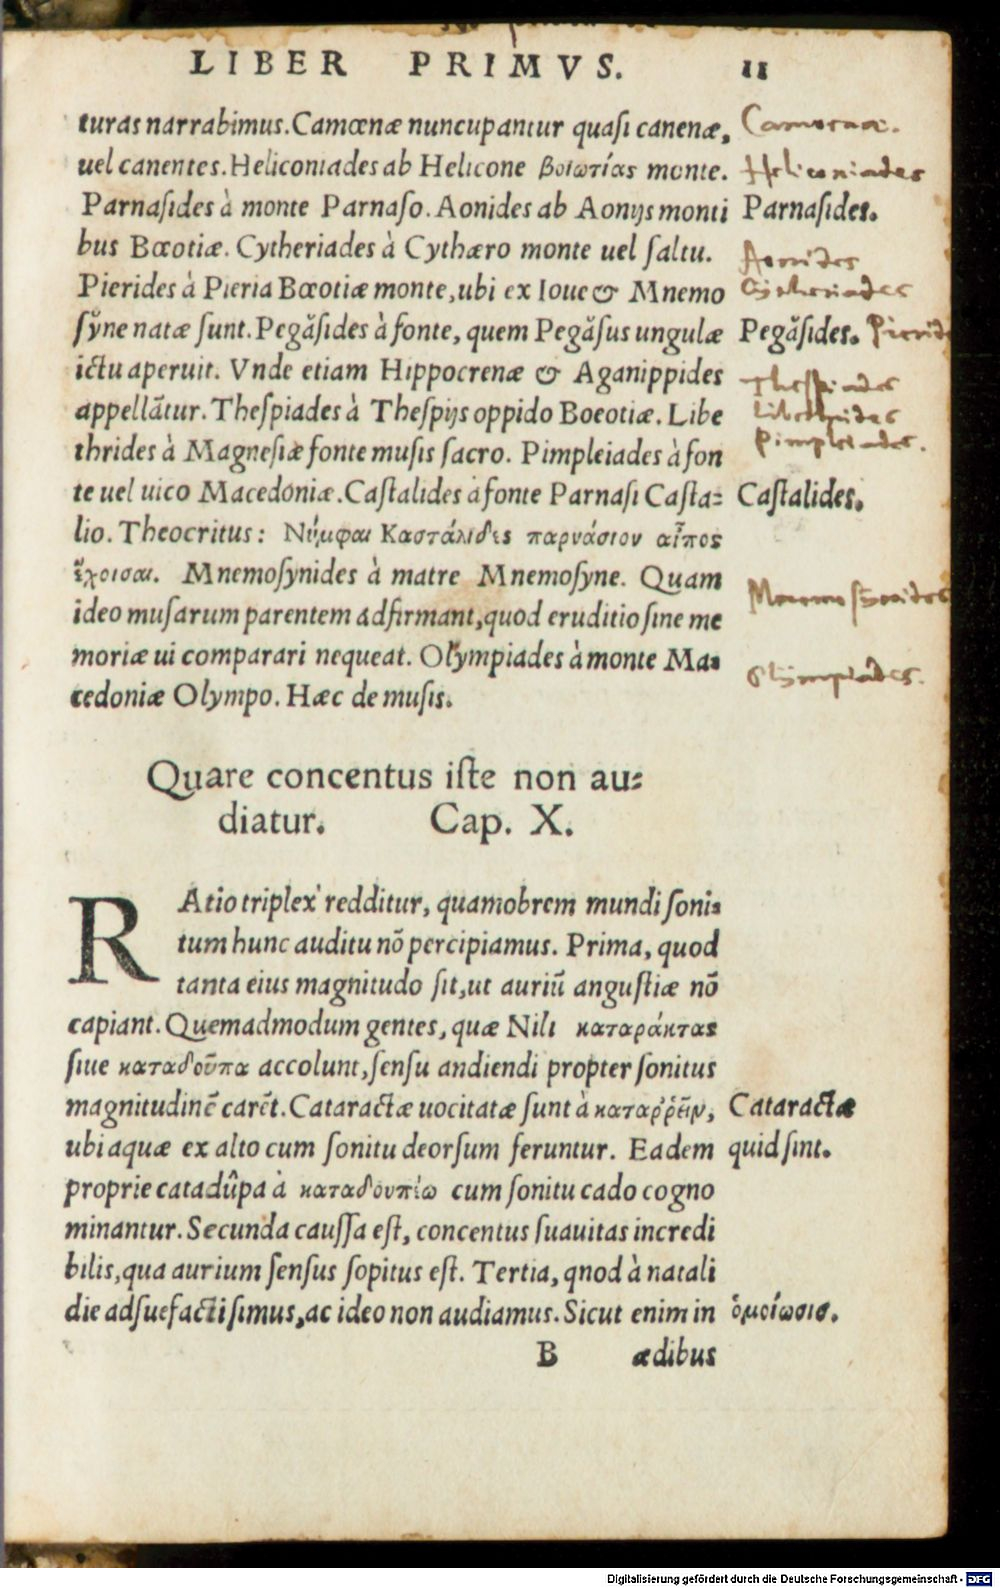 LIBER PRIMVS. 11
turas narrabimus. Camœnæ nuncupantur quasi canenæ,
Camoenae.
uel canentes. Heliconiades ab Helicone βοιωτίας monte.
Heliconiades
Parnasides à monte Parnaso. Aonides ab Aonijs monti
Parnasides.
bus Bœotiæ. Cytheriades à Cythæro monte uel saltu.
Aonides
Pierides à Pieria Bœotiæ monte, ubi ex Ioue & Mnemo
Cytheriades
sy̆ne natæ sunt. Pegăsides à fonte, quem Pegăsus ungulæ
Pegăsides. Pierid
ictu aperuit. Vnde etiam Hippocrenæ & Aganippides
Thespiades
appellātur. Thespiades à Thespijs oppido Boeotiæ. Libe
Libethrides
thrides à Magnesiæ fonte musis sacro. Pimpleiades à fon
Pimpleiades.
te uel uico Macedoniæ. Castalides à fonte Parnasi Casta-
Castalides.
lio. Theocritus: Νύμφαι Κασταλίδες παρνάσιον αἶπος
ἔχοισαι. Mnemosynides à matre Mnemosyne. Quam
Mnemosynides
ideo musarum parentem adfirmant, quod eruditio sine me
moriæ ui comparari nequeat. Olympiades à monte Ma-
Olympiades.
cedoniæ Olympo. Hæc de musis.
Quare concentus iste non au-
diatur. Cap. X.
RAtio triplex redditur, quamobrem mundi soni-
tum hunc auditu nō percipiamus. Prima, quod
tanta eius magnitudo sit, ut auriū angustiæ nō
capiant. Quemadmodum gentes, quæ Nili καταράκτας
siue καταδοῦπα accolunt, sensu andiendi propter sonitus
magnitudinē carēt. Cataractæ uocitatæ sunt à καταῤῥεῖν,
Cataractæ
ubi aquæ ex alto cum sonitu deorsum feruntur. Eadem
quid sint.
proprie catadûpa à καταδουπέω cum sonitu cado cogno
minantur. Secunda caussa est, concentus suauitas incredi
bilis, qua aurium sensus sopitus est. Tertia, qnod à natali
die adsuefactisimus, ac ideo non audiamus. Sicut enim in
ὁμοίωσις.
B ædibus
Digitalisierung gefördert durch die Deutsche Forschungsgemeinschaft - DFG